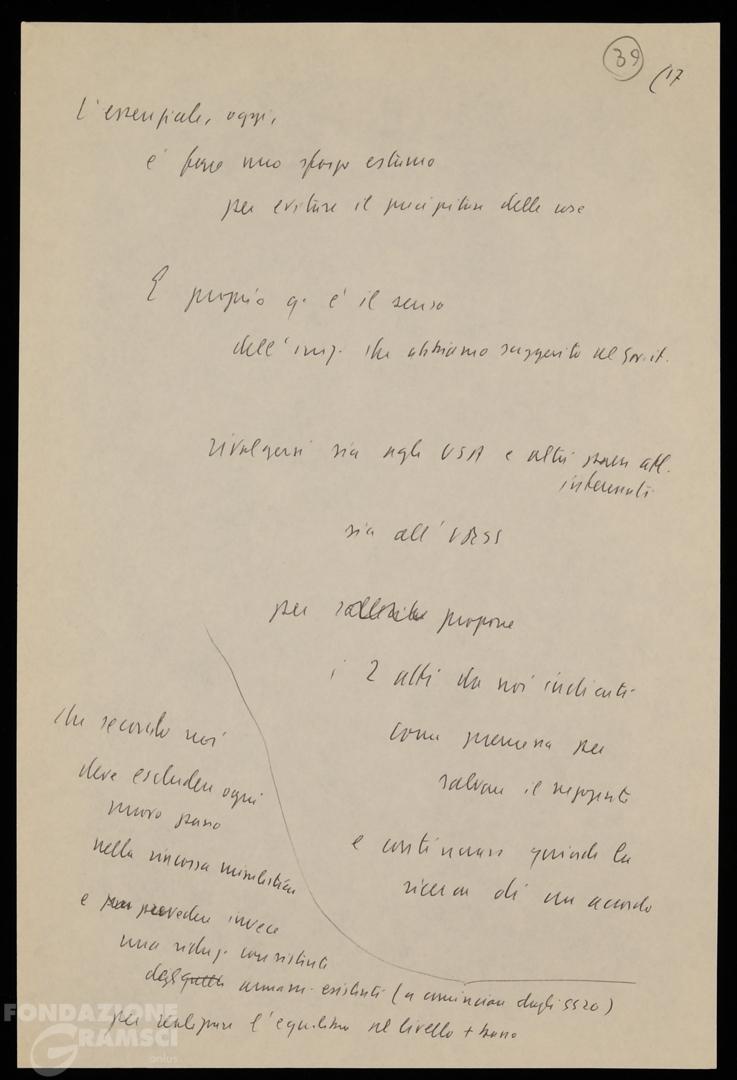 39
(17
L'essenziale, oggi,
è fare uno sforzo estremo
per evitare il precipitare delle cose
E proprio q. è il senso
dell'iniz. che abbiamo suggerito al Gov. it.
rivolgersi sia agli USA e altri paesi all.
interessati
sia all'URSS
per proporre
i 2 atti da noi indicati
come premessa per
salvare il negoziato
e continuare quindi la
ricerca di un accordo
che secondo noi
deve escludere ogni
nuovo passo
nella rincorsa missilistica
e prevedere invece
una riduz. consistente
degli armam. esistenti (a cominciare dagli SS20)
per realizzare l'equilibrio al livello + basso
FONDAZIONE
GRAMSCI
onlus